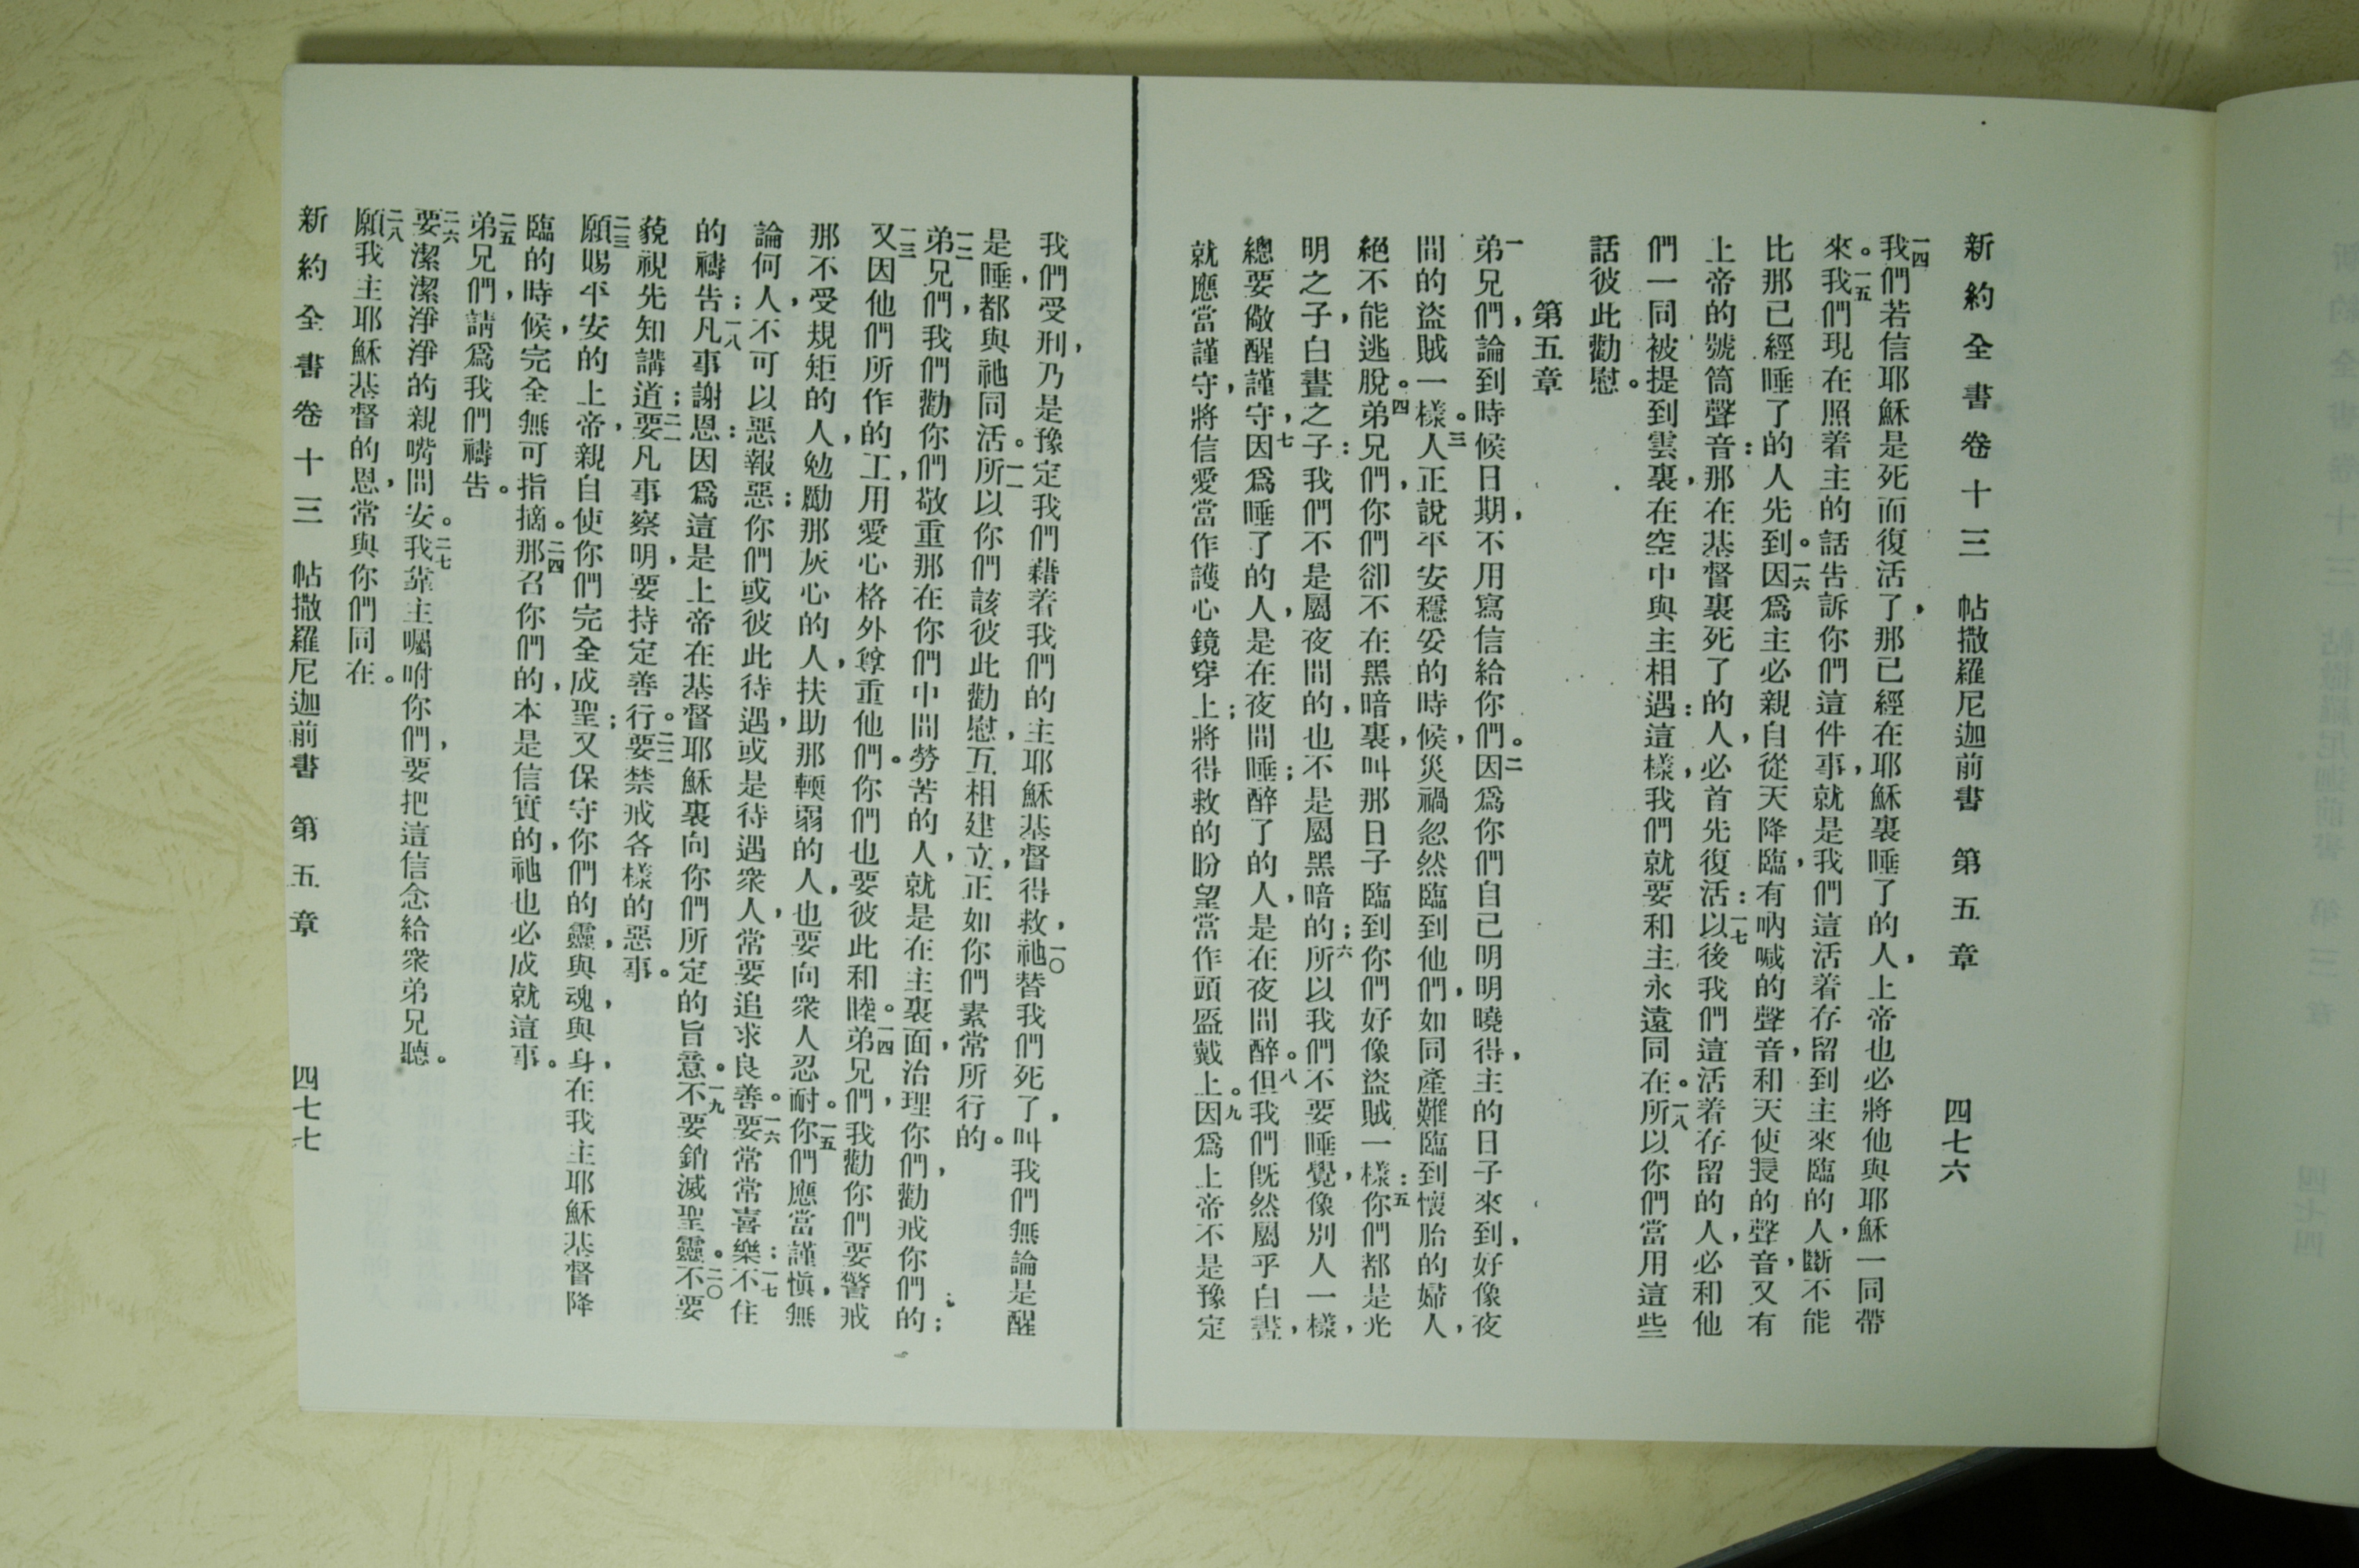 新約全書卷十三 帖撒羅尼迦前書 第五章 四七六
一四我們若信耶穌是死而復活了，那已經在耶穌裏睡了的人，上帝也必將他與耶穌一同帶
來。一五我們現在照着主的話告訴你們這件事，就是我們這活着存留到主來臨的人，斷不能
比那已經睡了的人先到。一六因爲主必親自從天降臨，有吶喊的聲音，和天使長的聲音，又有
上帝的號筒聲音：那在基督裏死了的人，必首先復活：一七以後我們這活着存留的人，必和他
們一同被提到雲裏，在空中與主相遇：這樣，我們就要和主永遠同在。一八所以你們當用這些
話彼此勸慰。
第五章
一弟兄們，論到時候日期，不用寫信給你們。二因爲你們自己明明曉得，主的日子來到，好像夜
間的盜賊一樣。三人正說平安穩妥的時候，災禍忽然臨到他們，如同產難臨到懷胎的婦人，
絕不能逃脫。四弟兄們，你們卻不在黑暗裏，叫那日子臨到你們好像盜賊一樣：五你們都是光
明之子，白晝之子：我們不是屬夜間的，也不是屬黑暗的；六所以我們不要睡覺，像別人一樣，
總要儆醒謹守，七因爲睡了的人，是在夜間睡；醉了的人，是在夜間醉。八但我們旣然屬乎白晝，
就應當謹守，將信愛當作護心鏡穿上；將得救的盼望當作頭盔戴上。九因爲上帝不是豫定
我們受刑，乃是豫定我們藉着我們的主耶穌基督得救，一〇祂替我們死了，叫我們無論是醒
是睡，都與祂同活。一一所以你們該彼此勸慰，互相建立，正如你們素常所行的。
一二弟兄們，我們勸你們敬重那在你們中間勞苦的人，就是在主裏面治理你們，勸戒你們的；
一三又因他們所作的工，用愛心格外尊重他們。你們也要彼此和睦。一四弟兄們，我勸你們要警戒
那不受規矩的人，勉勵那灰心的人，扶助那輭弱的人，也要向衆人忍耐。一五你們應當謹愼，無
論何人，不可以惡報惡；你們或彼此待遇，或是待遇衆人，常要追求良善。一六要常常喜樂：一七不住
的禱告；一八凡事謝恩：因爲這是上帝在基督耶穌裏向你們所定的旨意。一九不要銷滅聖靈。二〇不要
藐視先知講道；二一要凡事察明，要持定善行。二二要禁戒各樣的惡事。
二三願賜平安的上帝，親自使你們完全成聖；又保守你們的靈，與魂，與身，在我主耶穌基督降
臨的時候，完全無可指摘。二四那召你們的，本是信實的，祂也必成就這事。
二五弟兄們，請爲我們禱告。
二六要潔潔淨淨的親嘴問安。二七我靠主囑咐你們，要把這信念給衆弟兄聽。
二八願我主耶穌基督的恩，常與你們同在。
新約全書卷十三 帖撒羅尼迦前書 第五章 四七七